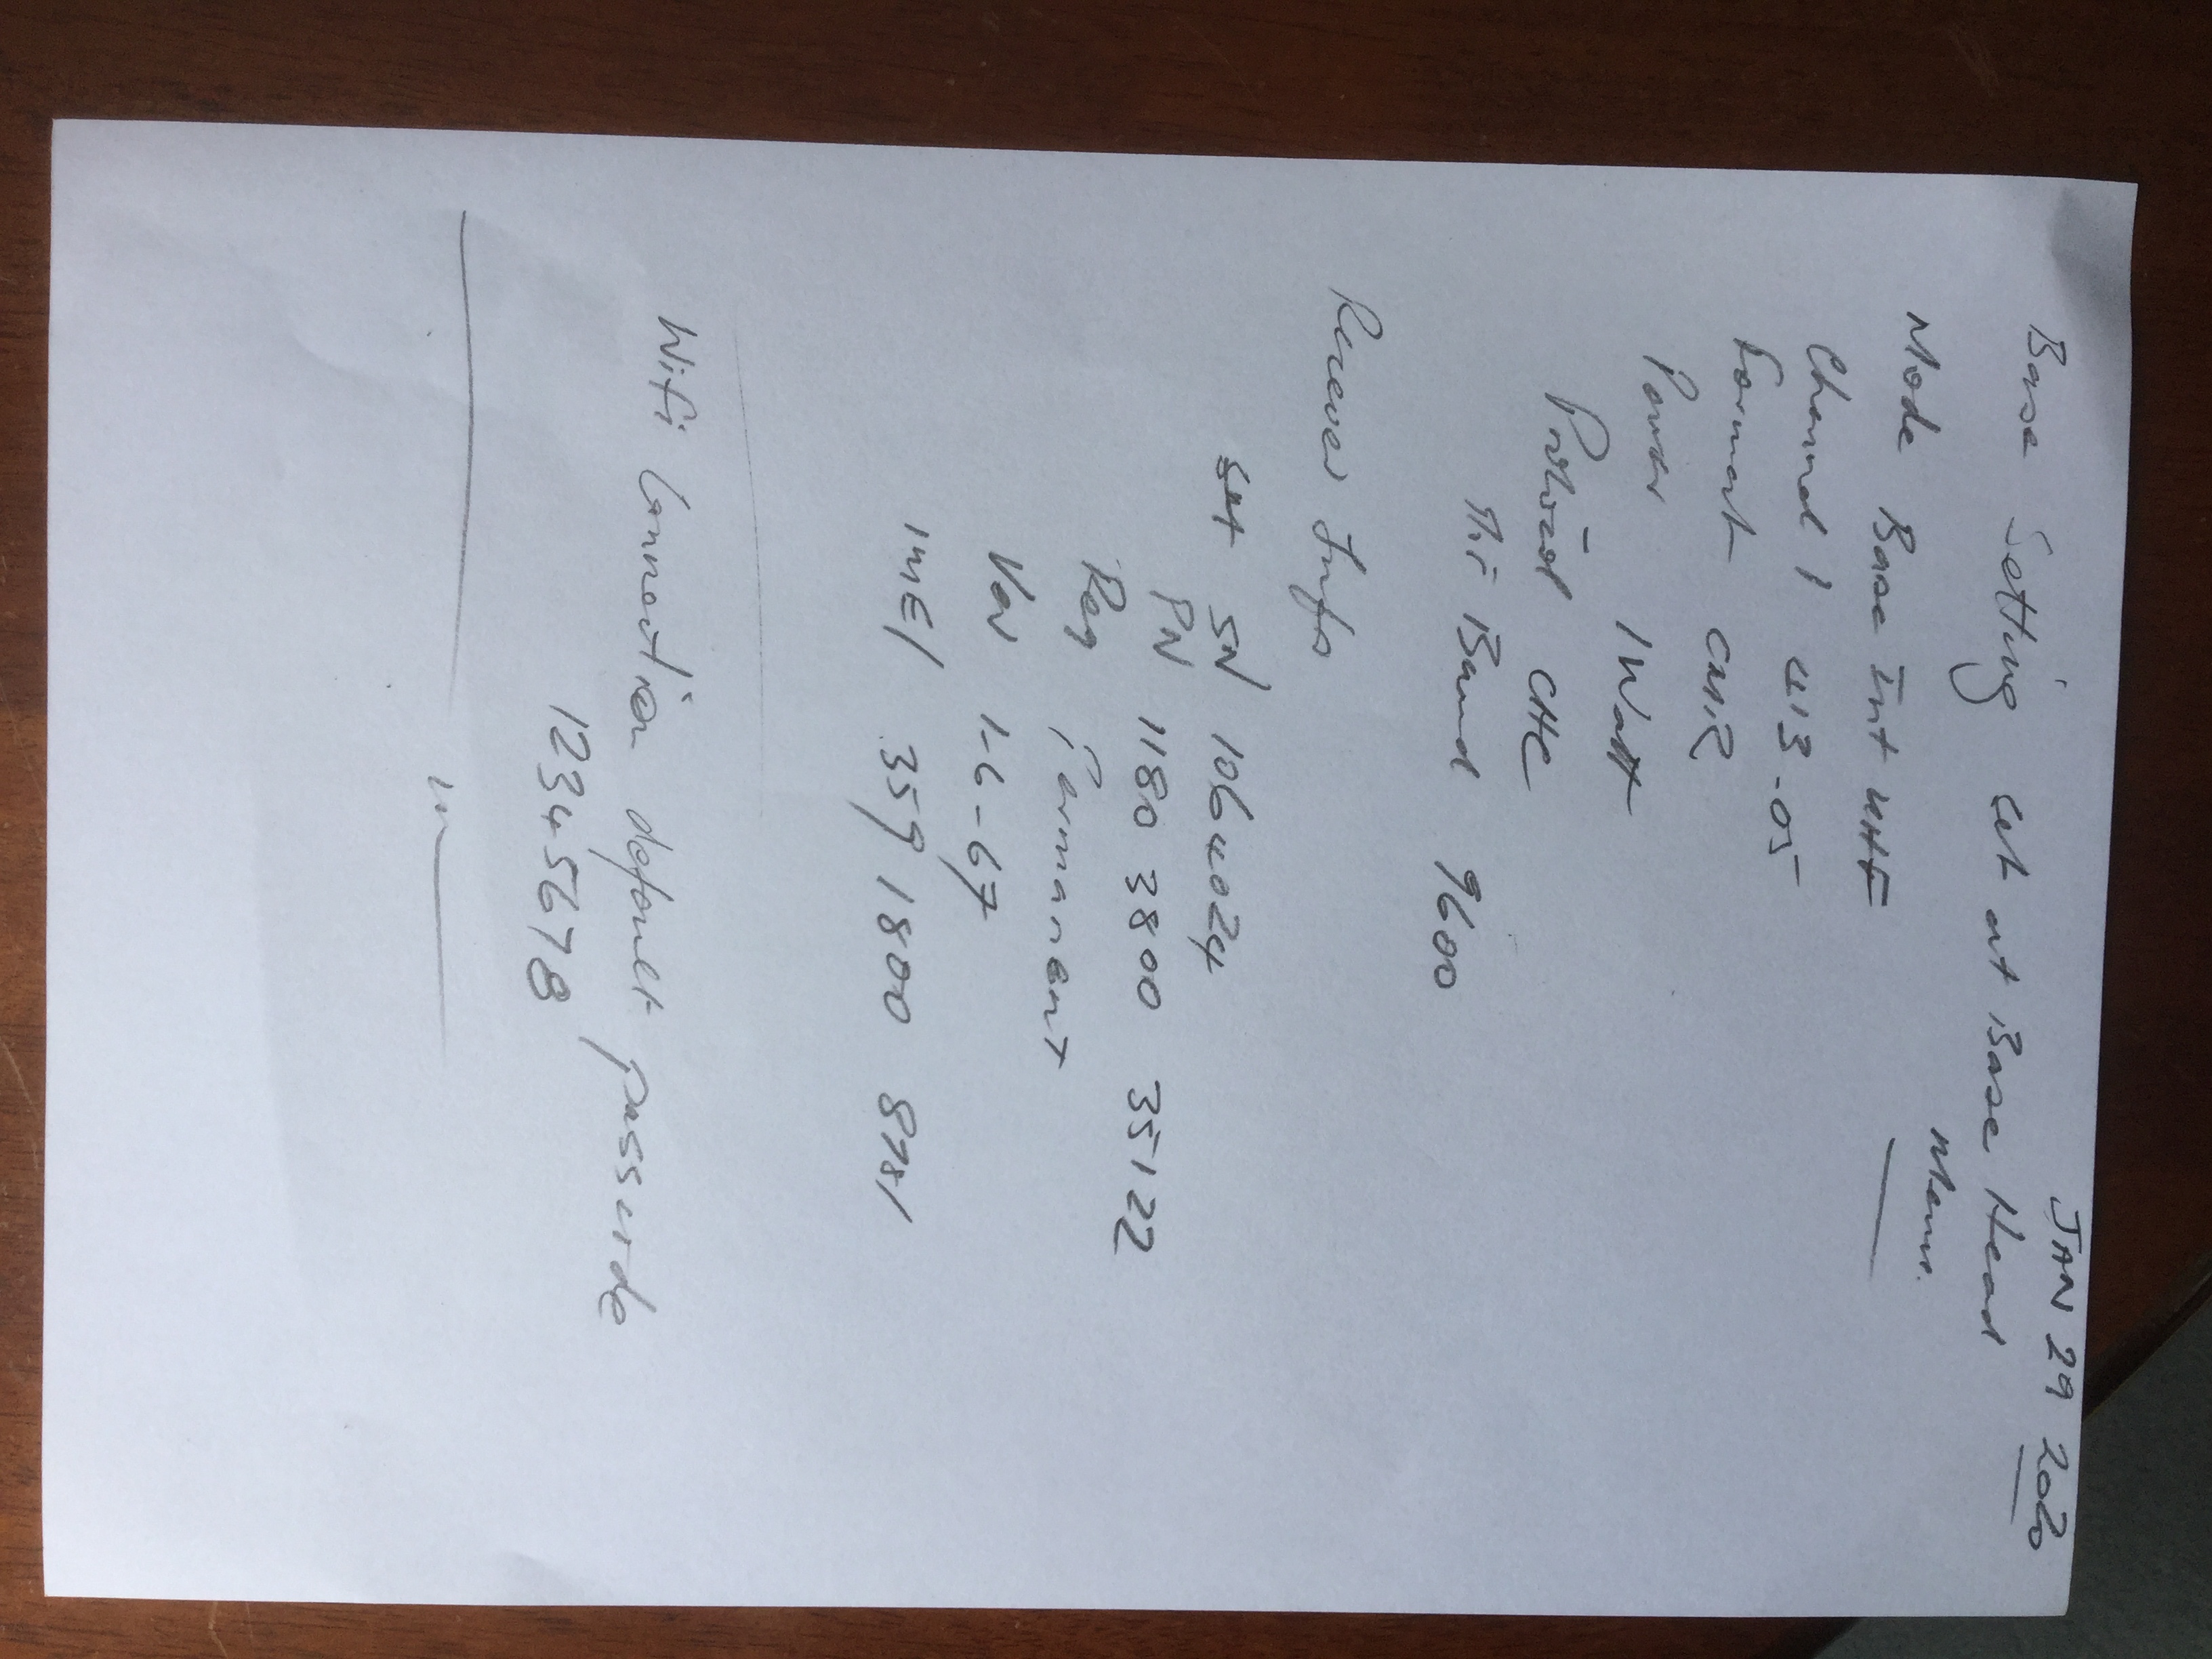 JAN 29 2020
Base Setting set at Base Head
Menu.
Mode Base Int UHF
Channel 1 413.05
Format CMR
Power 1 Watt
Protocol CHC
Air Baud 9600
Recever Info
SN 1064024
PN 1180 3800 35122
Reg Permanent
Ver 1-6-67
IMEI 359 1800 8781
Wifi Connection default passcode
12345678